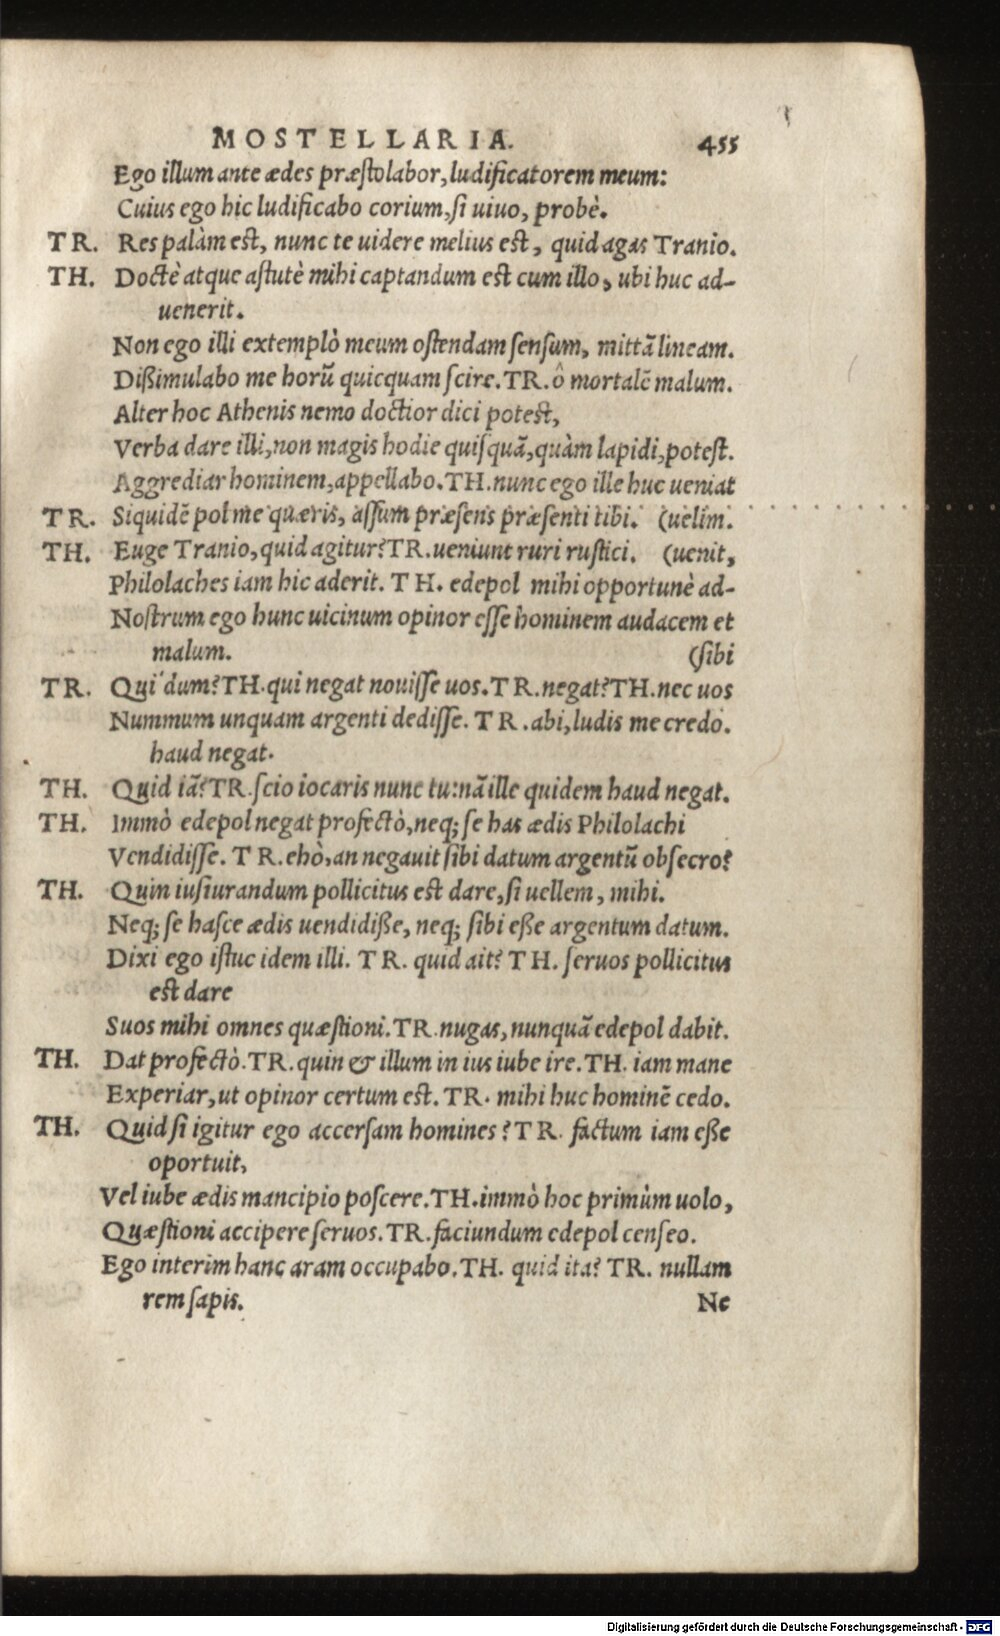 MOSTELLARIA. 455
Ego illum ante ædes præstolabor, ludificatorem meum:
Cuius ego hic ludificabo corium, si uiuo, probè.
TR. Res palàm est, nunc te uidere melius est, quid agas Tranio.
TH. Doctè atque astutè mihi captandum est cum illo, ubi huc ad-
uenerit.
Non ego illi extemplò meum ostendam sensum, mittã lineam.
Dißimulabo me horũ quicquam scire. TR. ô mortalẽ malum.
Alter hoc Athenis nemo doctior dici potest,
Verba dare illi, non magis hodie quisquã, quàm lapidi, potest.
Aggrediar hominem, appellabo. TH. nunc ego ille huc ueniat
TR. Siquidẽ pol me quæris, assum præsens præsenti tibi. (uelim.
TH. Euge Tranio, quid agitur? TR. ueniunt ruri rustici. (uenit,
Philolaches iam hic aderit. TH. edepol mihi opportunè ad-
Nostrum ego hunc uicinum opinor esse hominem audacem et
malum. (sibi
TR. Qui dum? TH. qui negat nouisse uos. TR. negat? TH. nec uos
Nummum unquam argenti dedisse. TR. abi, ludis me credo.
haud negat.
TH. Quid iã? TR. scio iocaris nunc tu: nã ille quidem haud negat.
TH. Immò edepol negat profectò, neq; se has ædis Philolachi
Vendidisse. TR. ehò, an negauit sibi datum argentũ obsecro?
TH. Quin iusiurandum pollicitus est dare, si uellem, mihi.
Neq; se hasce ædis uendidiße, neq; sibi eße argentum datum.
Dixi ego istuc idem illi. TR. quid ait? TH. seruos pollicitus
est dare
Suos mihi omnes quæstioni. TR. nugas, nunquã edepol dabit.
TH. Dat profectò. TR. quin & illum in ius iube ire. TH. iam mane
Experiar, ut opinor certum est. TR. mihi huc hominẽ cedo.
TH. Quid si igitur ego accersam homines? TR. factum iam eße
oportuit,
Vel iube ædis mancipio poscere. TH. immò hoc primùm uolo,
Quæstioni accipere seruos. TR. faciundum edepol censeo.
Ego interim hanc aram occupabo. TH. quid ita? TR. nullam
rem sapis. Ne
Digitalisierung gefördert durch die Deutsche Forschungsgemeinschaft - DFG